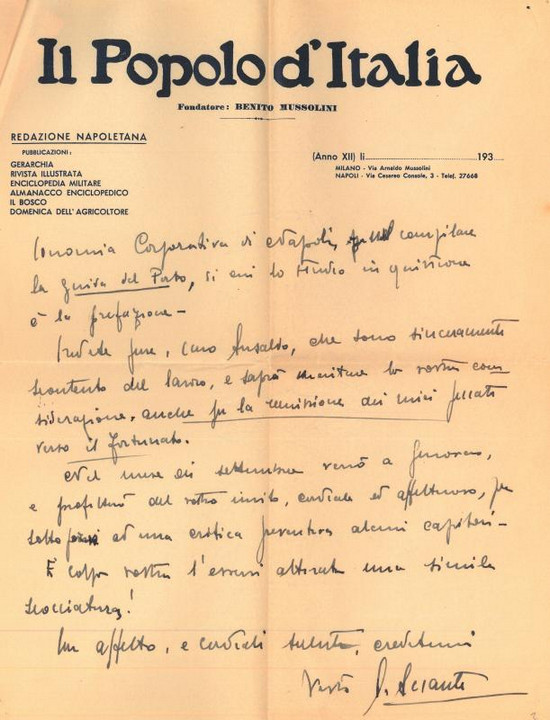 Il Popolo d'Italia
Fondatore: BENITO MUSSOLINI
REDAZIONE NAPOLETANA
PUBBLICAZIONI:
GERARCHIA
RIVISTA ILLUSTRATA
ENCICLOPEDIA MILITARE
ALMANACCO ENCICLOPEDICO
IL BOSCO
DOMENICA DELL'AGRICOLTORE
(Anno XII) li 193
MILANO - Via Arnaldo Mussolini
NAPOLI - Via Cesareo Console, 3 - Telef. 27668
Corporativa di Napoli, compilare
la Guida del Porto, di cui lo studio in quistione
è la prefazione -
pure, caro Ansaldo, che sono sinceramente
scontento del lavoro, e saprò meritare la vostra con
siderazione, anche per la remissione dei miei peccati
verso il Fortunato.
Nel mese di settembre verrò a Genova,
e profitterò del vostro invito, cordiale ed affettuoso, per
ad una critica preventiva alcuni capitoli -
È colpa vostra l'esservi attirata una simile
scocciatura!
Con affetto, e cordiali saluti, credetemi
Vostro